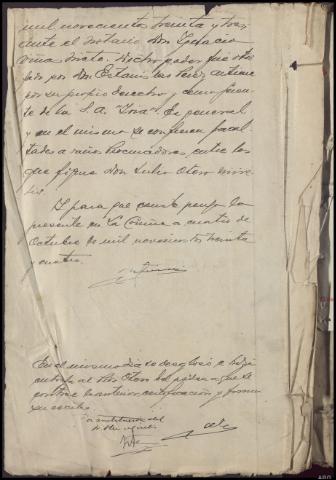 mil novecientos treinta y tres
ante el Notario Don Ignacio
Dicho poder fue otor
gado por Don Estanislao Perez
por su propio derecho y como geren
te de la S.A. Es general
y en el mismo se confieren facul
tades a varios Procuradores, entre los
que figura Don Julio Otero
Y para que conste pongo la
presente en La Coruña a cuatro de
Octubre de mil novecientos treinta
y cuatro.
En el mismo dia se desglosó e hizo
entrega al Sr. Otero del poder a que se
contrae la anterior certificación y firma
su recibo